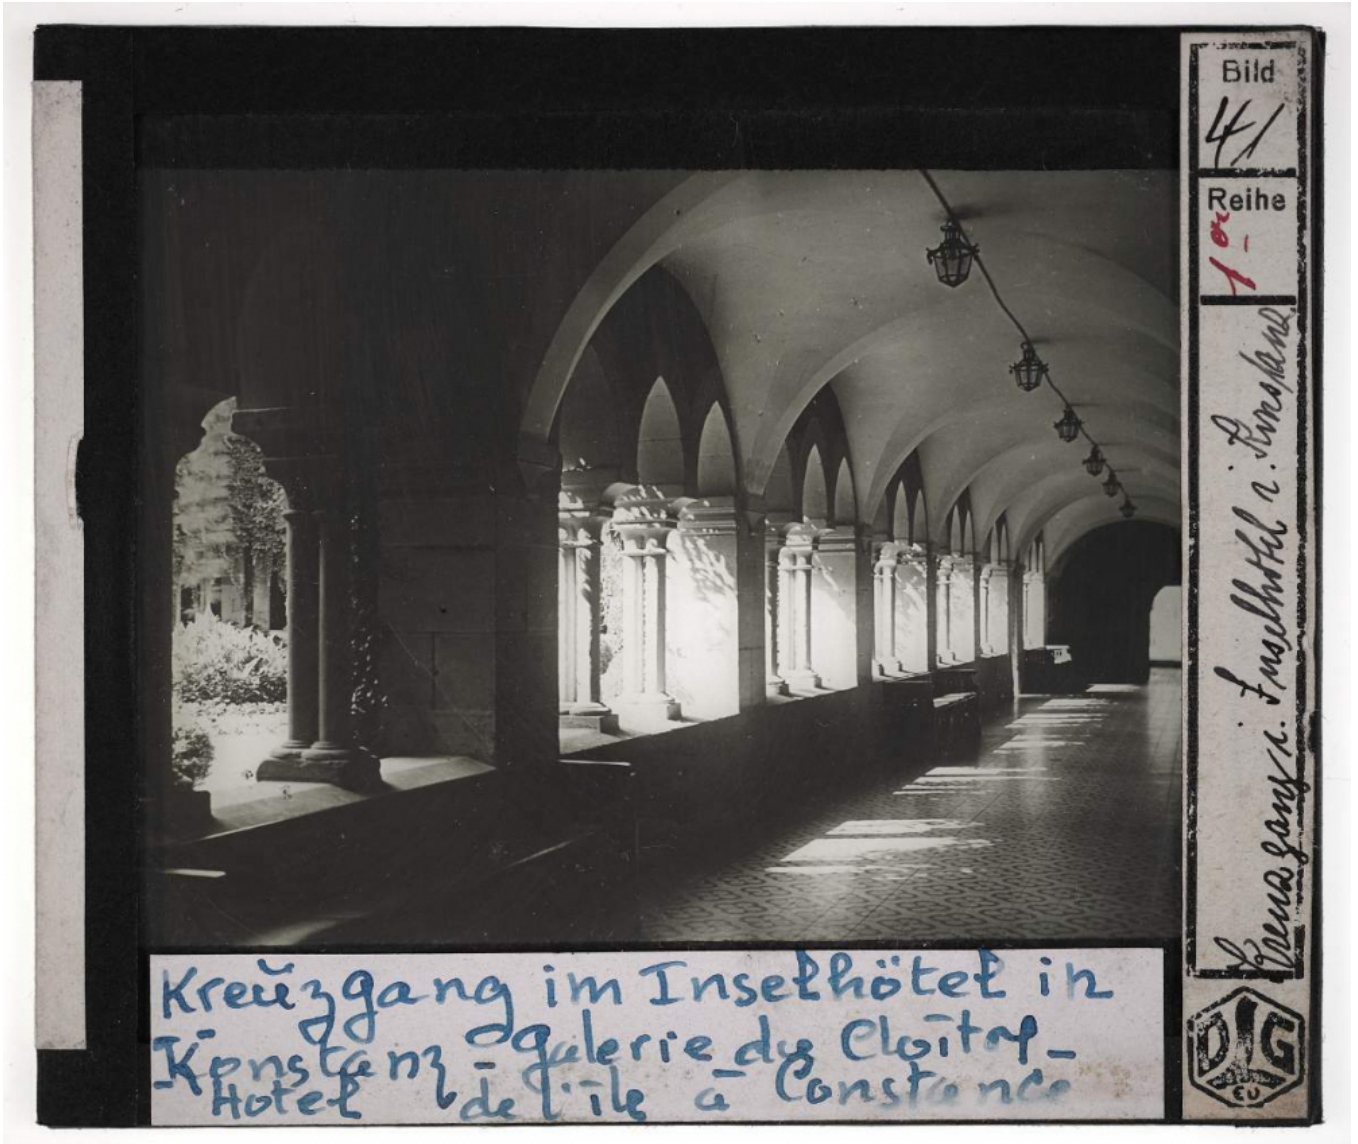 Bild
41
Reihe
1er
Kreuzgang i. Inselhotel i. Konstanz
Kreuzgang im Inselhötel in
Konstanz - galerie du Cloître -
Hotel de l'île à Constance
DLG
EU